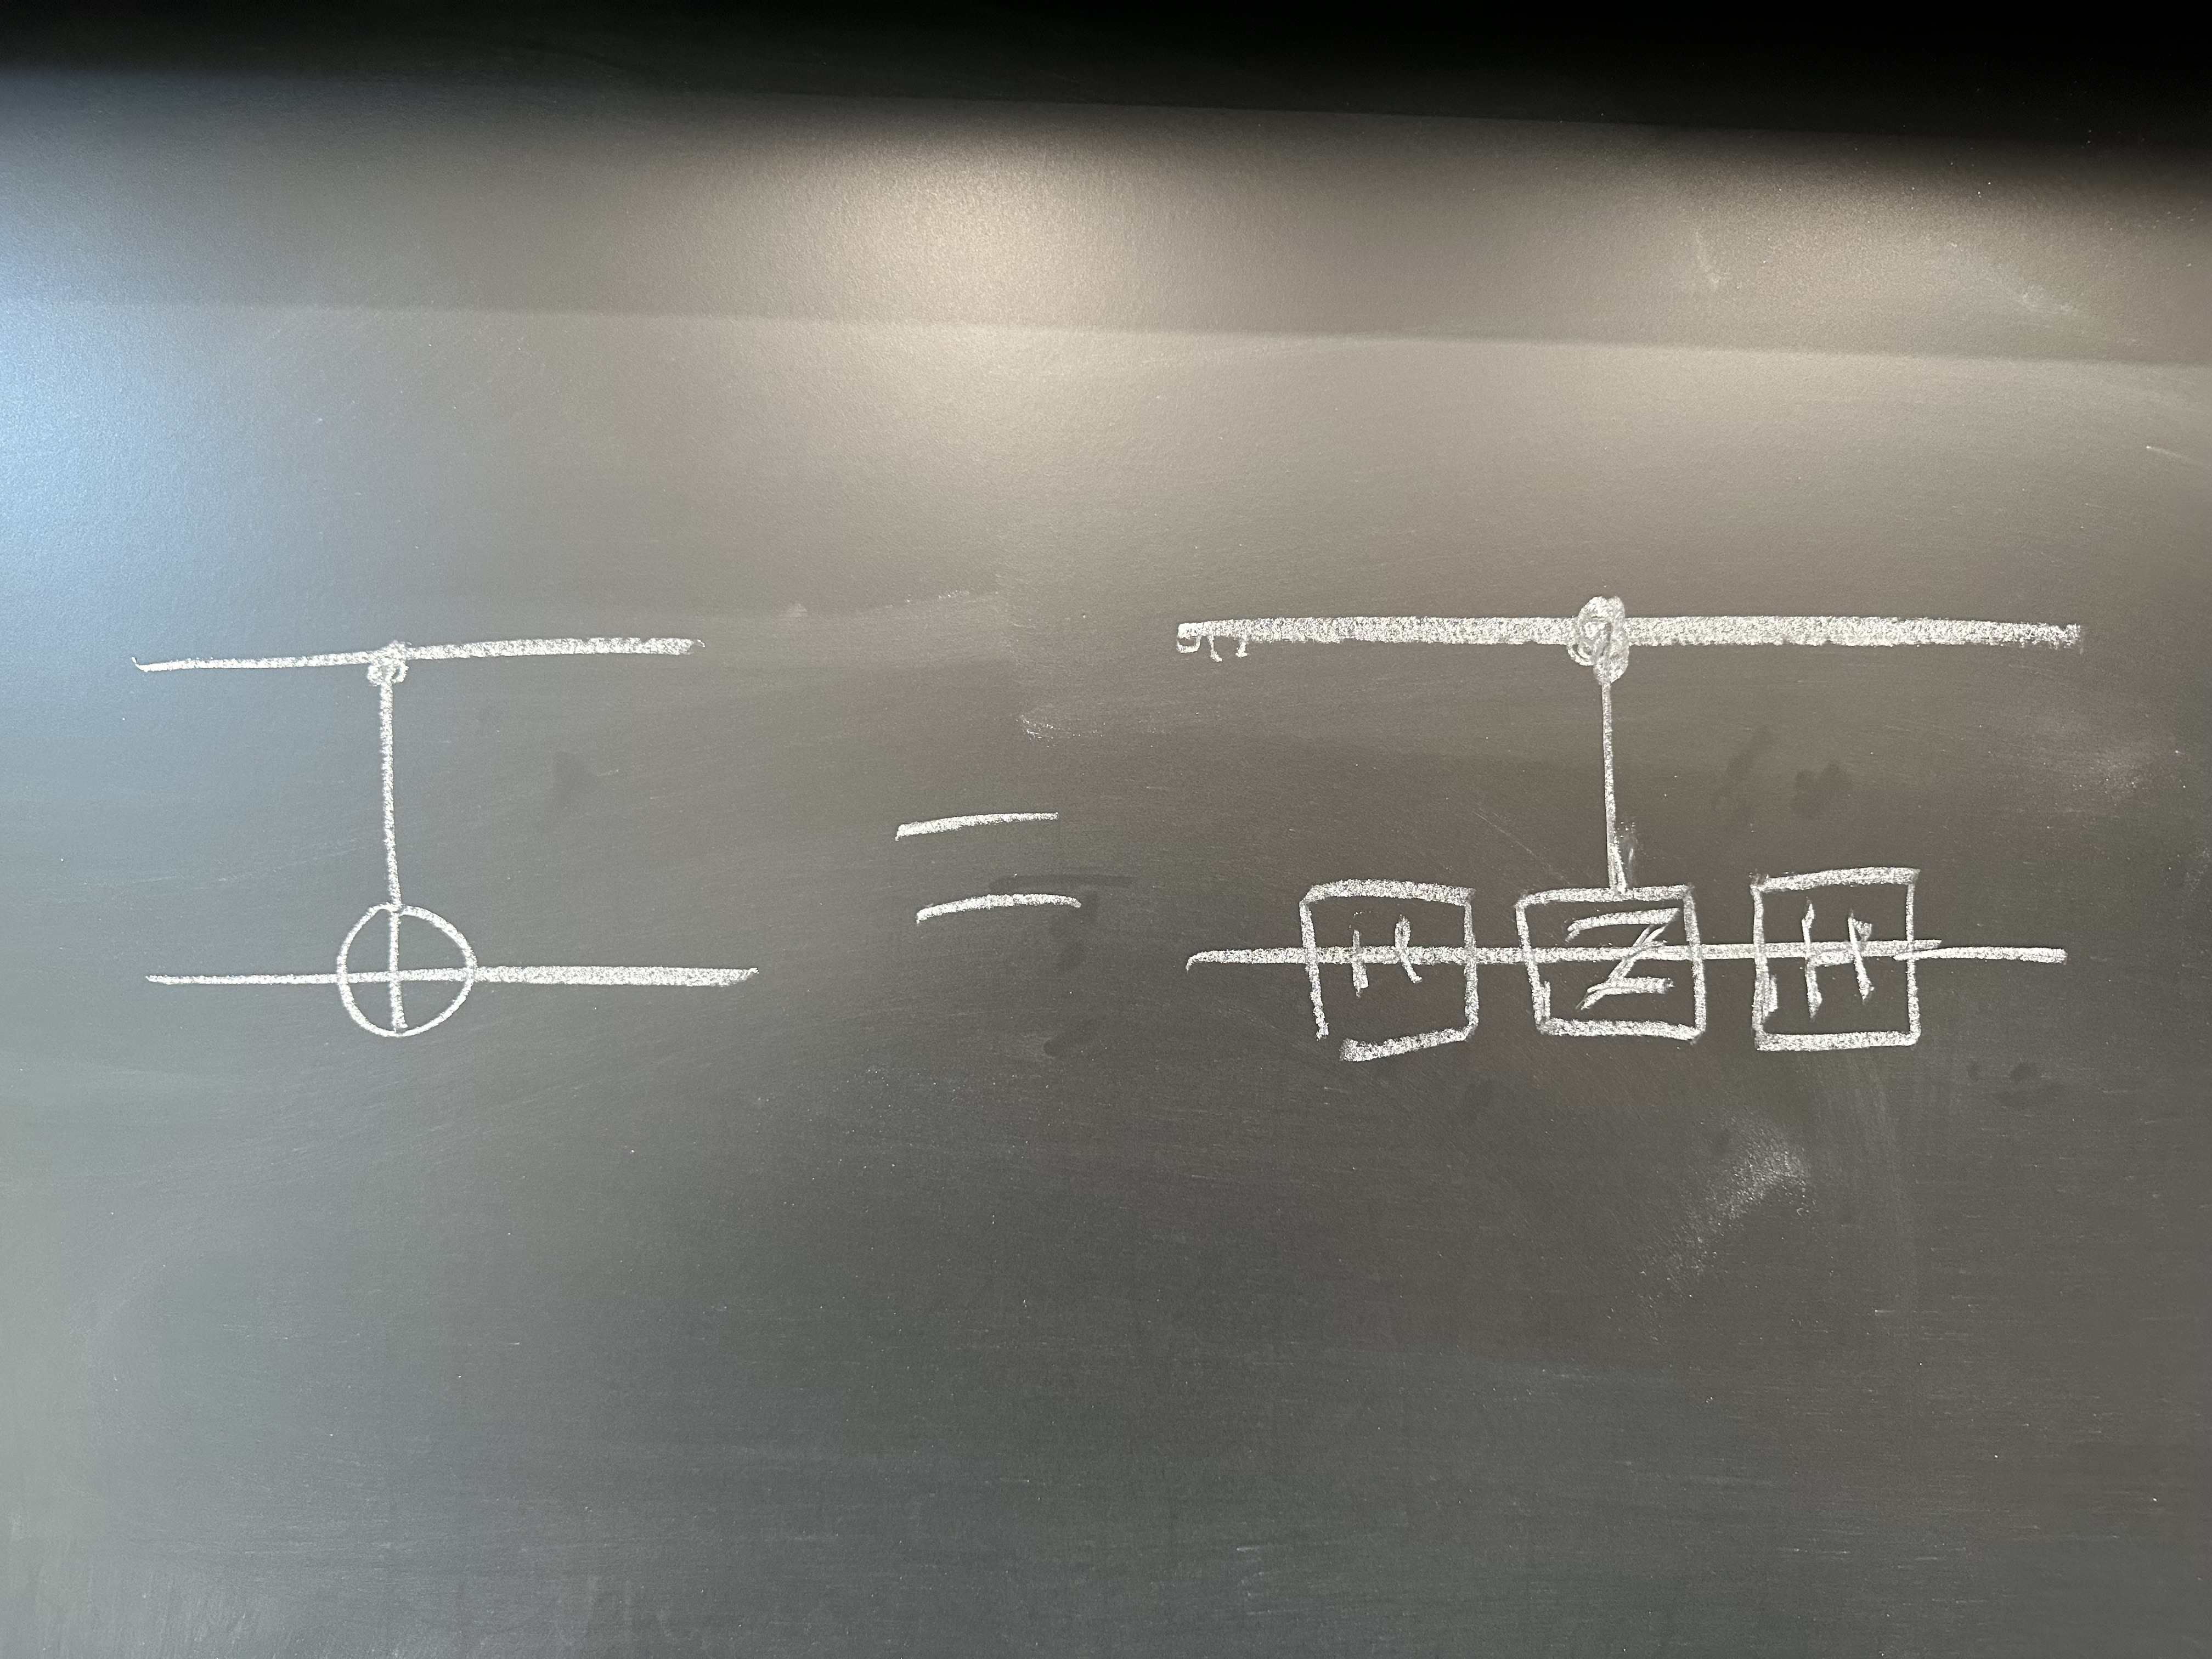 =
H Z H